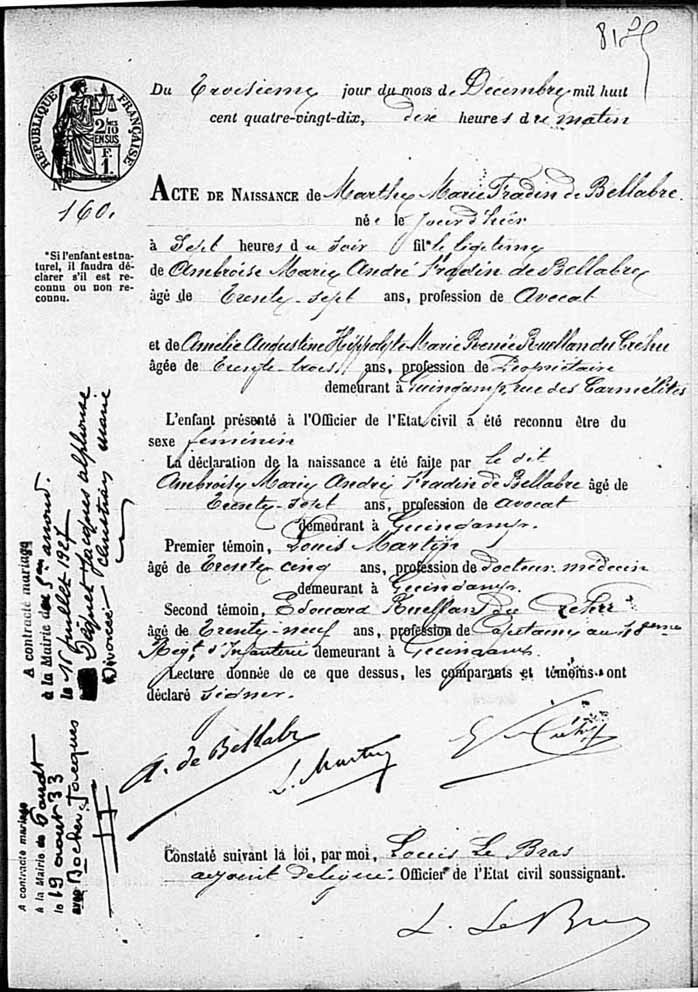 81
RÉPUBLIQUE FRANÇAISE
2/10 EN SUS
F. 1.
N°
160.
*Si l'enfant est na-
turel, il faudra dé-
clarer s'il est re-
connu ou non re-
connu.
Du Troisième jour du mois de Décembre mil huit
cent quatre-vingt-dix, dix heures du matin
ACTE DE NAISSANCE de Marthe Marie Fradin de Bellabre
née le jour d'hier
à Sept heures du soir fille légitime
de Ambroise Marie André Fradin de Bellabre
âgé de Trente-sept ans, profession de Avocat
et de Amélie Augustine Hippolyte Marie Renée Ruellan du Créhu
âgée de Vingt-trois ans, profession de Propriétaire
demeurant à Guingamp, rue des Carmélites
L'enfant présenté à l'Officier de l'Etat civil a été reconnu être du
sexe féminin
La déclaration de la naissance a été faite par le dit
Ambroise Marie André Fradin de Bellabre âgé de
Trente-sept ans, profession de avocat
demeurant à Guingamp.
Premier témoin, Louis Martin
âgé de Trente cinq ans, profession de docteur-médecin
demeurant à Guingamp.
Second témoin, Edouard Ruellan du Créhu
âgé de Trente-neuf ans, profession de Capitaine au 48eme
Régt d'Infanterie demeurant à Guingamp
Lecture donnée de ce que dessus, les comparants et témoins ont
déclaré signer.
A. de Bellabre
L. Martin
E. du Créhu
Constaté suivant la loi, par moi, Louis Le Bras
adjoint délégué Officier de l'Etat civil soussigné.
L. Le Bras
A contracté mariage
à la Mairie du 5me arrond.
le 16 juillet 1927
Jacques Alphonse
Christian Marie
Divorcée
A contracté mariage
à la Mairie de
le 19 août 33
avec Bocher Jacques